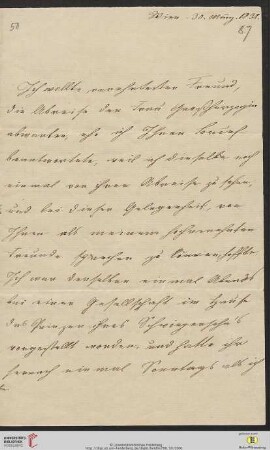 50
Wien 30. März. 1838.
87
Ich wollte, verehrtester Freund,
die Abreise der Frau Großherzogin
abwarten, ehe ich Ihren
beantwortete, weil ich dieselbe noch
einmal vor ihrer Abreise zu sehen,
und bei dieser Gelegenheit, von
Ihnen als meinem
Freunde sprechen zu können hoffte.
Ich war derselben einmal Abends
bei einer Gesellschaft im Hause
des Prinzen ihres Schwiegersohns
vorgestellt worden, und hatte sie
hernach einmal Sonntags als ich